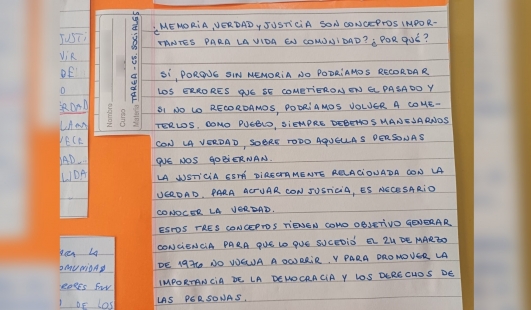 ¿MEMORIA, VERDAD Y JUSTICIA SON CONCEPTOS IMPOR-
TANTES PARA LA VIDA EN COMUNIDAD? ¿POR QUÉ?
SÍ, PORQUE SIN MEMORIA NO PODRÍAMOS RECORDAR
LOS ERRORES QUE SE COMETIERON EN EL PASADO Y
SI NO LO RECORDAMOS, PODRÍAMOS VOLVER A COME-
TERLOS. COMO PUEBLO, SIEMPRE DEBEMOS MANEJARNOS
CON LA VERDAD, SOBRE TODO AQUELLAS PERSONAS
QUE NOS GOBIERNAN.
LA JUSTICIA ESTÁ DIRECTAMENTE RELACIONADA CON LA
VERDAD. PARA ACTUAR CON JUSTICIA, ES NECESARIO
CONOCER LA VERDAD.
ESTOS TRES CONCEPTOS TIENEN COMO OBJETIVO GENERAR
CONCIENCIA PARA QUE LO QUE SUCEDIÓ EL 24 DE MARZO
DE 1976 NO VUELVA A OCURRIR Y PARA PROMOVER LA
IMPORTANCIA DE LA DEMOCRACIA Y LOS DERECHOS DE
LAS PERSONAS.
Nombre
Curso
Materia TAREA - CS. SOCIALES
LA
OMUNIDAD
DE LOS